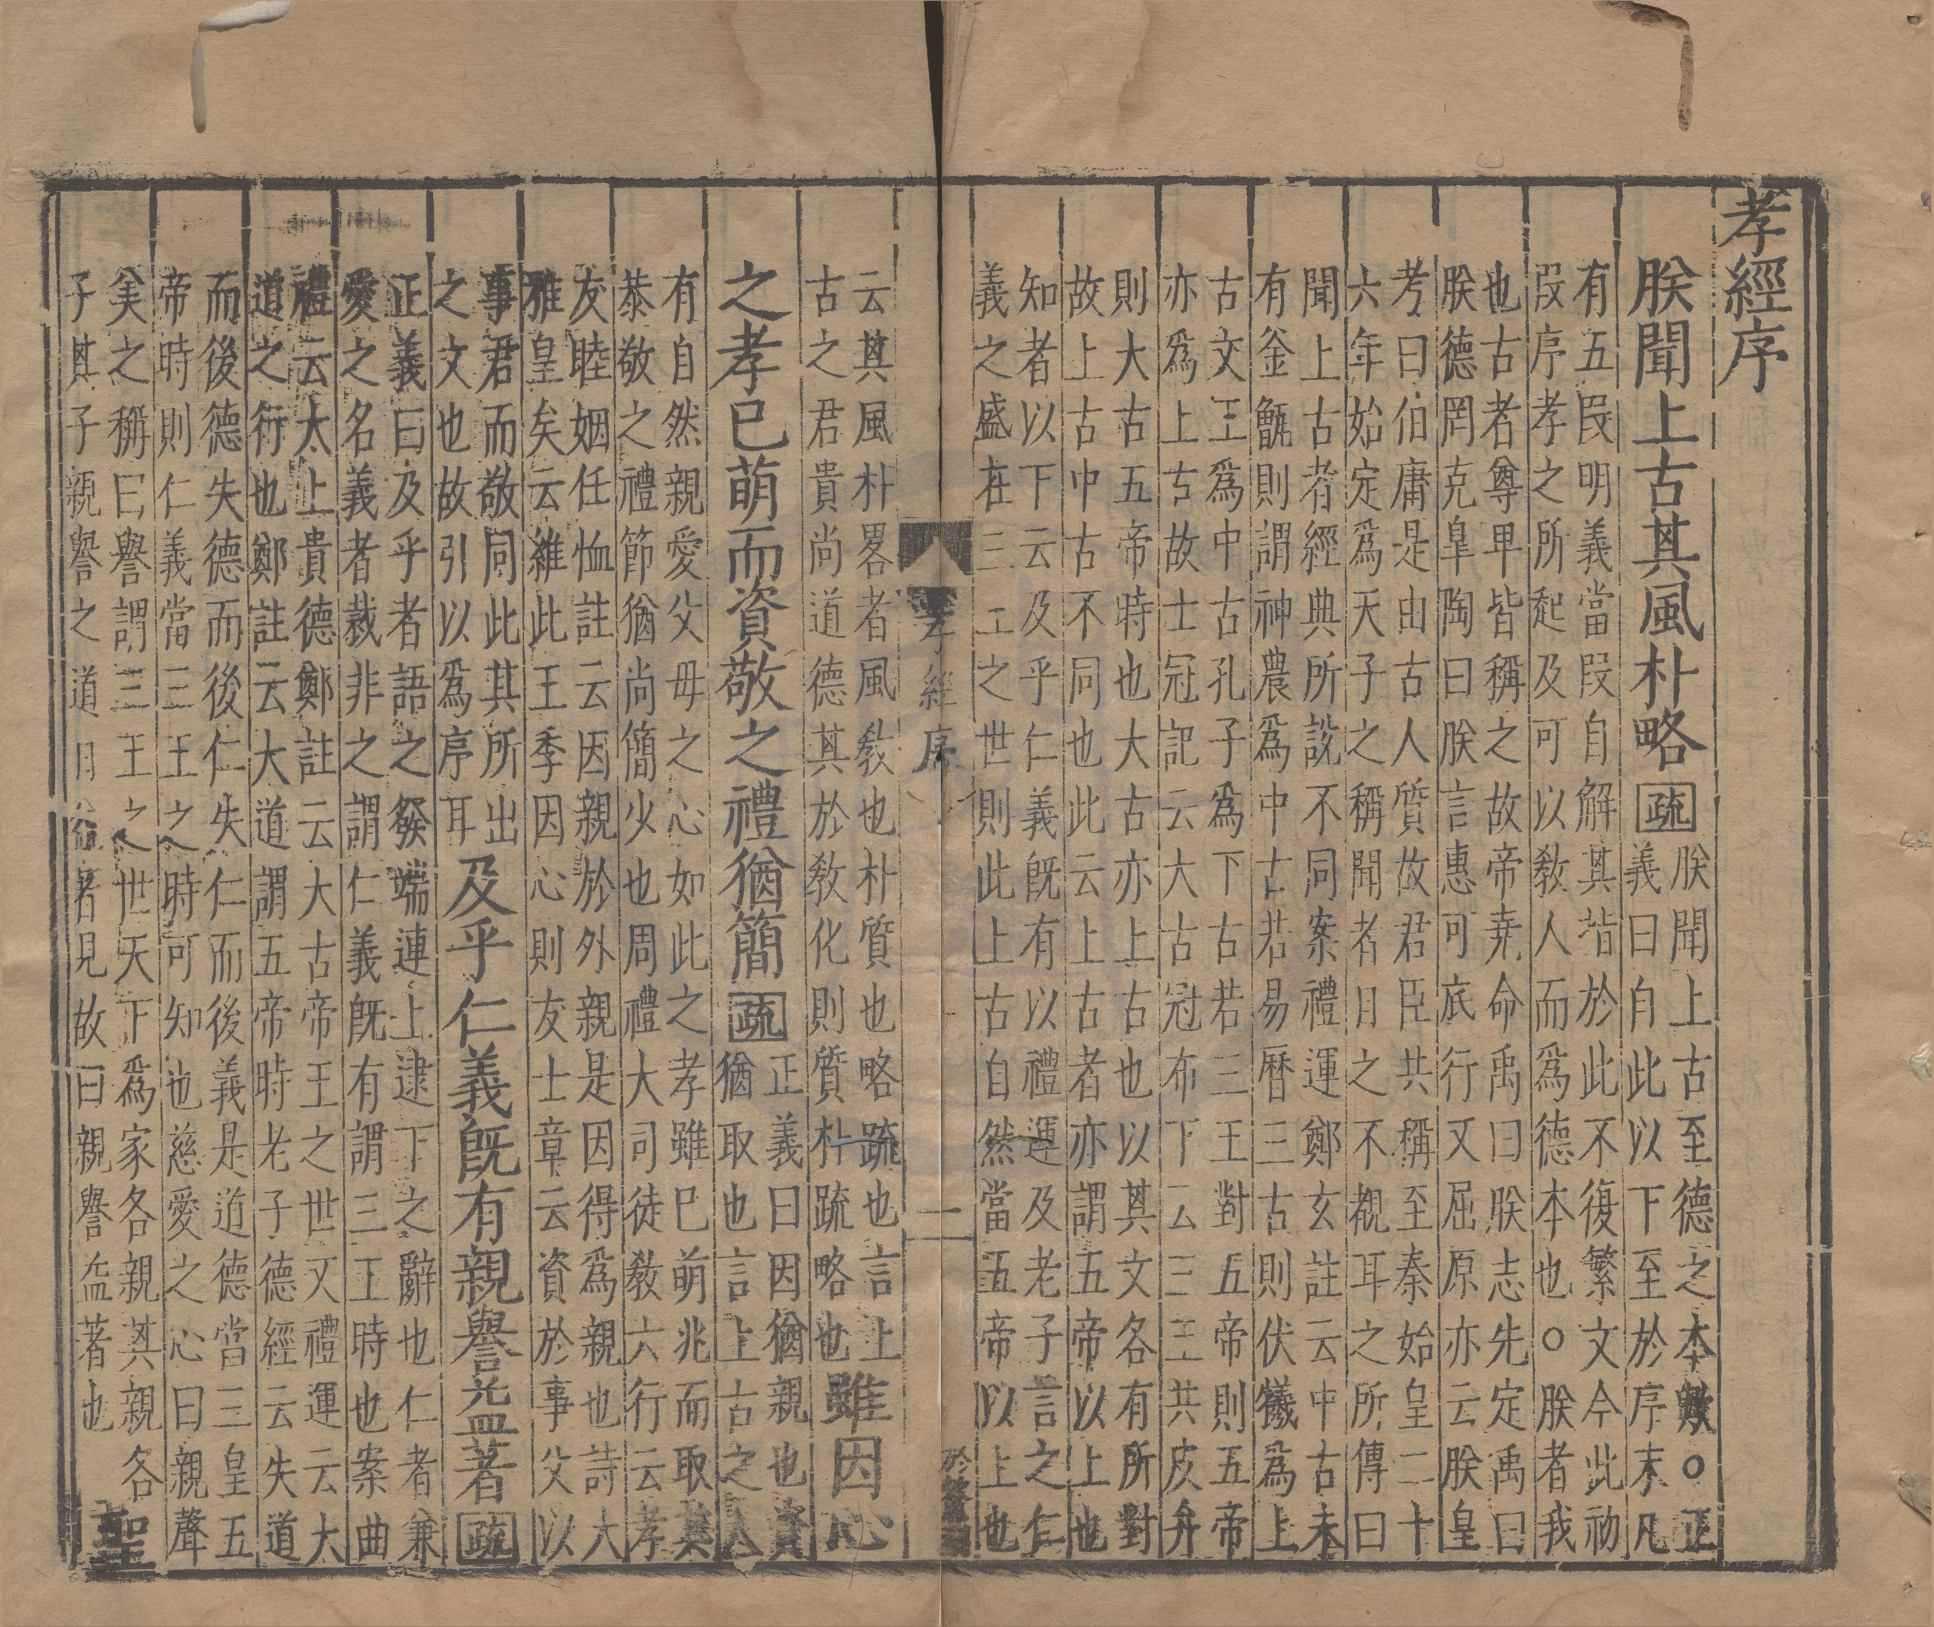 孝經序
朕聞上古其風朴略疏
朕聞上古至德之本歟○正
義曰自此以下至於序末凡
有五段明義當段自解其指於此不復繁文今此初
段序孝之所起及可以教人而為德本也○朕者我
也古者尊卑皆稱之故帝堯命禹曰朕志先定禹曰
朕德罔克皐陶曰朕言惠可底行又屈原亦云朕皇
考曰伯庸是由古人質故君臣共稱至秦始皇二十
六年始定爲天子之稱聞者目之不覩耳之所傳曰
聞上古者經典所說不同案禮運鄭玄註云中古未
有釜甑則謂神農爲中古若易曆三古則伏犧爲上
古文王爲中古孔子爲下古若三王對五帝則五帝
亦爲上古故士冠記云大古冠布下云三王共皮弁
則大古五帝時也大古亦上古也以其文各有所對
故上古中古不同也此云上古者亦謂五帝以上也
知者以下云及乎仁義旣有以禮運及老子言之仁
義之盛在三王之世則此上古自然當五帝以上也
孝經序
二
云其風朴畧者風教也朴質也略疏也言上
古之君貴尚道德其於教化則質朴疏略也
雖因心
之孝已萌而資敬之禮猶簡疏
正義曰因猶親也資
猶取也言上古之人
有自然親愛父毋之心如此之孝雖已萌兆而取其
恭敬之禮節猶尚簡少也周禮大司徒教六行云孝
友睦姻任恤註云因親於外親是因得爲親也詩大
雅皇矣云維此王季因心則友士章云資於事父以
事君而敬同此其所出
之文也故引以爲序耳
及乎仁義旣有親譽益著疏
正義曰及乎者語之發端連上逮下之辭也仁者兼
愛之名義者裁非之謂仁義旣有謂三王時也案曲
禮云太上貴德鄭註云大古帝王之世又禮運云大
道之行也鄭註云大道謂五帝時老子德經云失道
而後德失德而後仁失仁而後義是道德當三皇五
帝時則仁義當三王之時可知也慈愛之心曰親聲
美之稱曰譽謂三王之世天下爲家各親其親各
子其子親譽之道日益著見故曰親譽益著也
聖